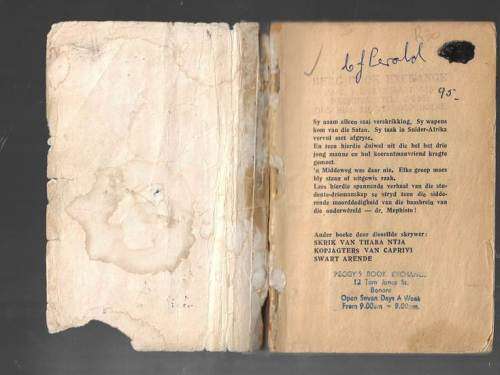 95-
Sy naam alleen saai verskrikking. Sy wapens
kom van die Satan. Sy taak in Suider-Afrika
vervul met afgryse.
En teen hierdie duiwel uit die hel het drie
jong manne en hul koerantmanvriend kragte
gemeet.
'n Middeweg was daar nie. Elke groep moes
bly staan of uitgewis raak.
Lees hierdie spannende verhaal van die stu-
dente-driemanskap se stryd teen die sidde-
rende moorddadigheid van die baasbrein van
die onderwêreld — dr. Mephisto!
Ander boeke deur dieselfde skrywer:
SKRIK VAN THABA NTJA
KOPJAGTERS VAN CAPRIVI
SWART ARENDE
PEGGY'S BOOK EXCHANGE
12 Tom Jones St.
Benoni
Open Seven Days A Week
From 9.00am - 9.00pm.